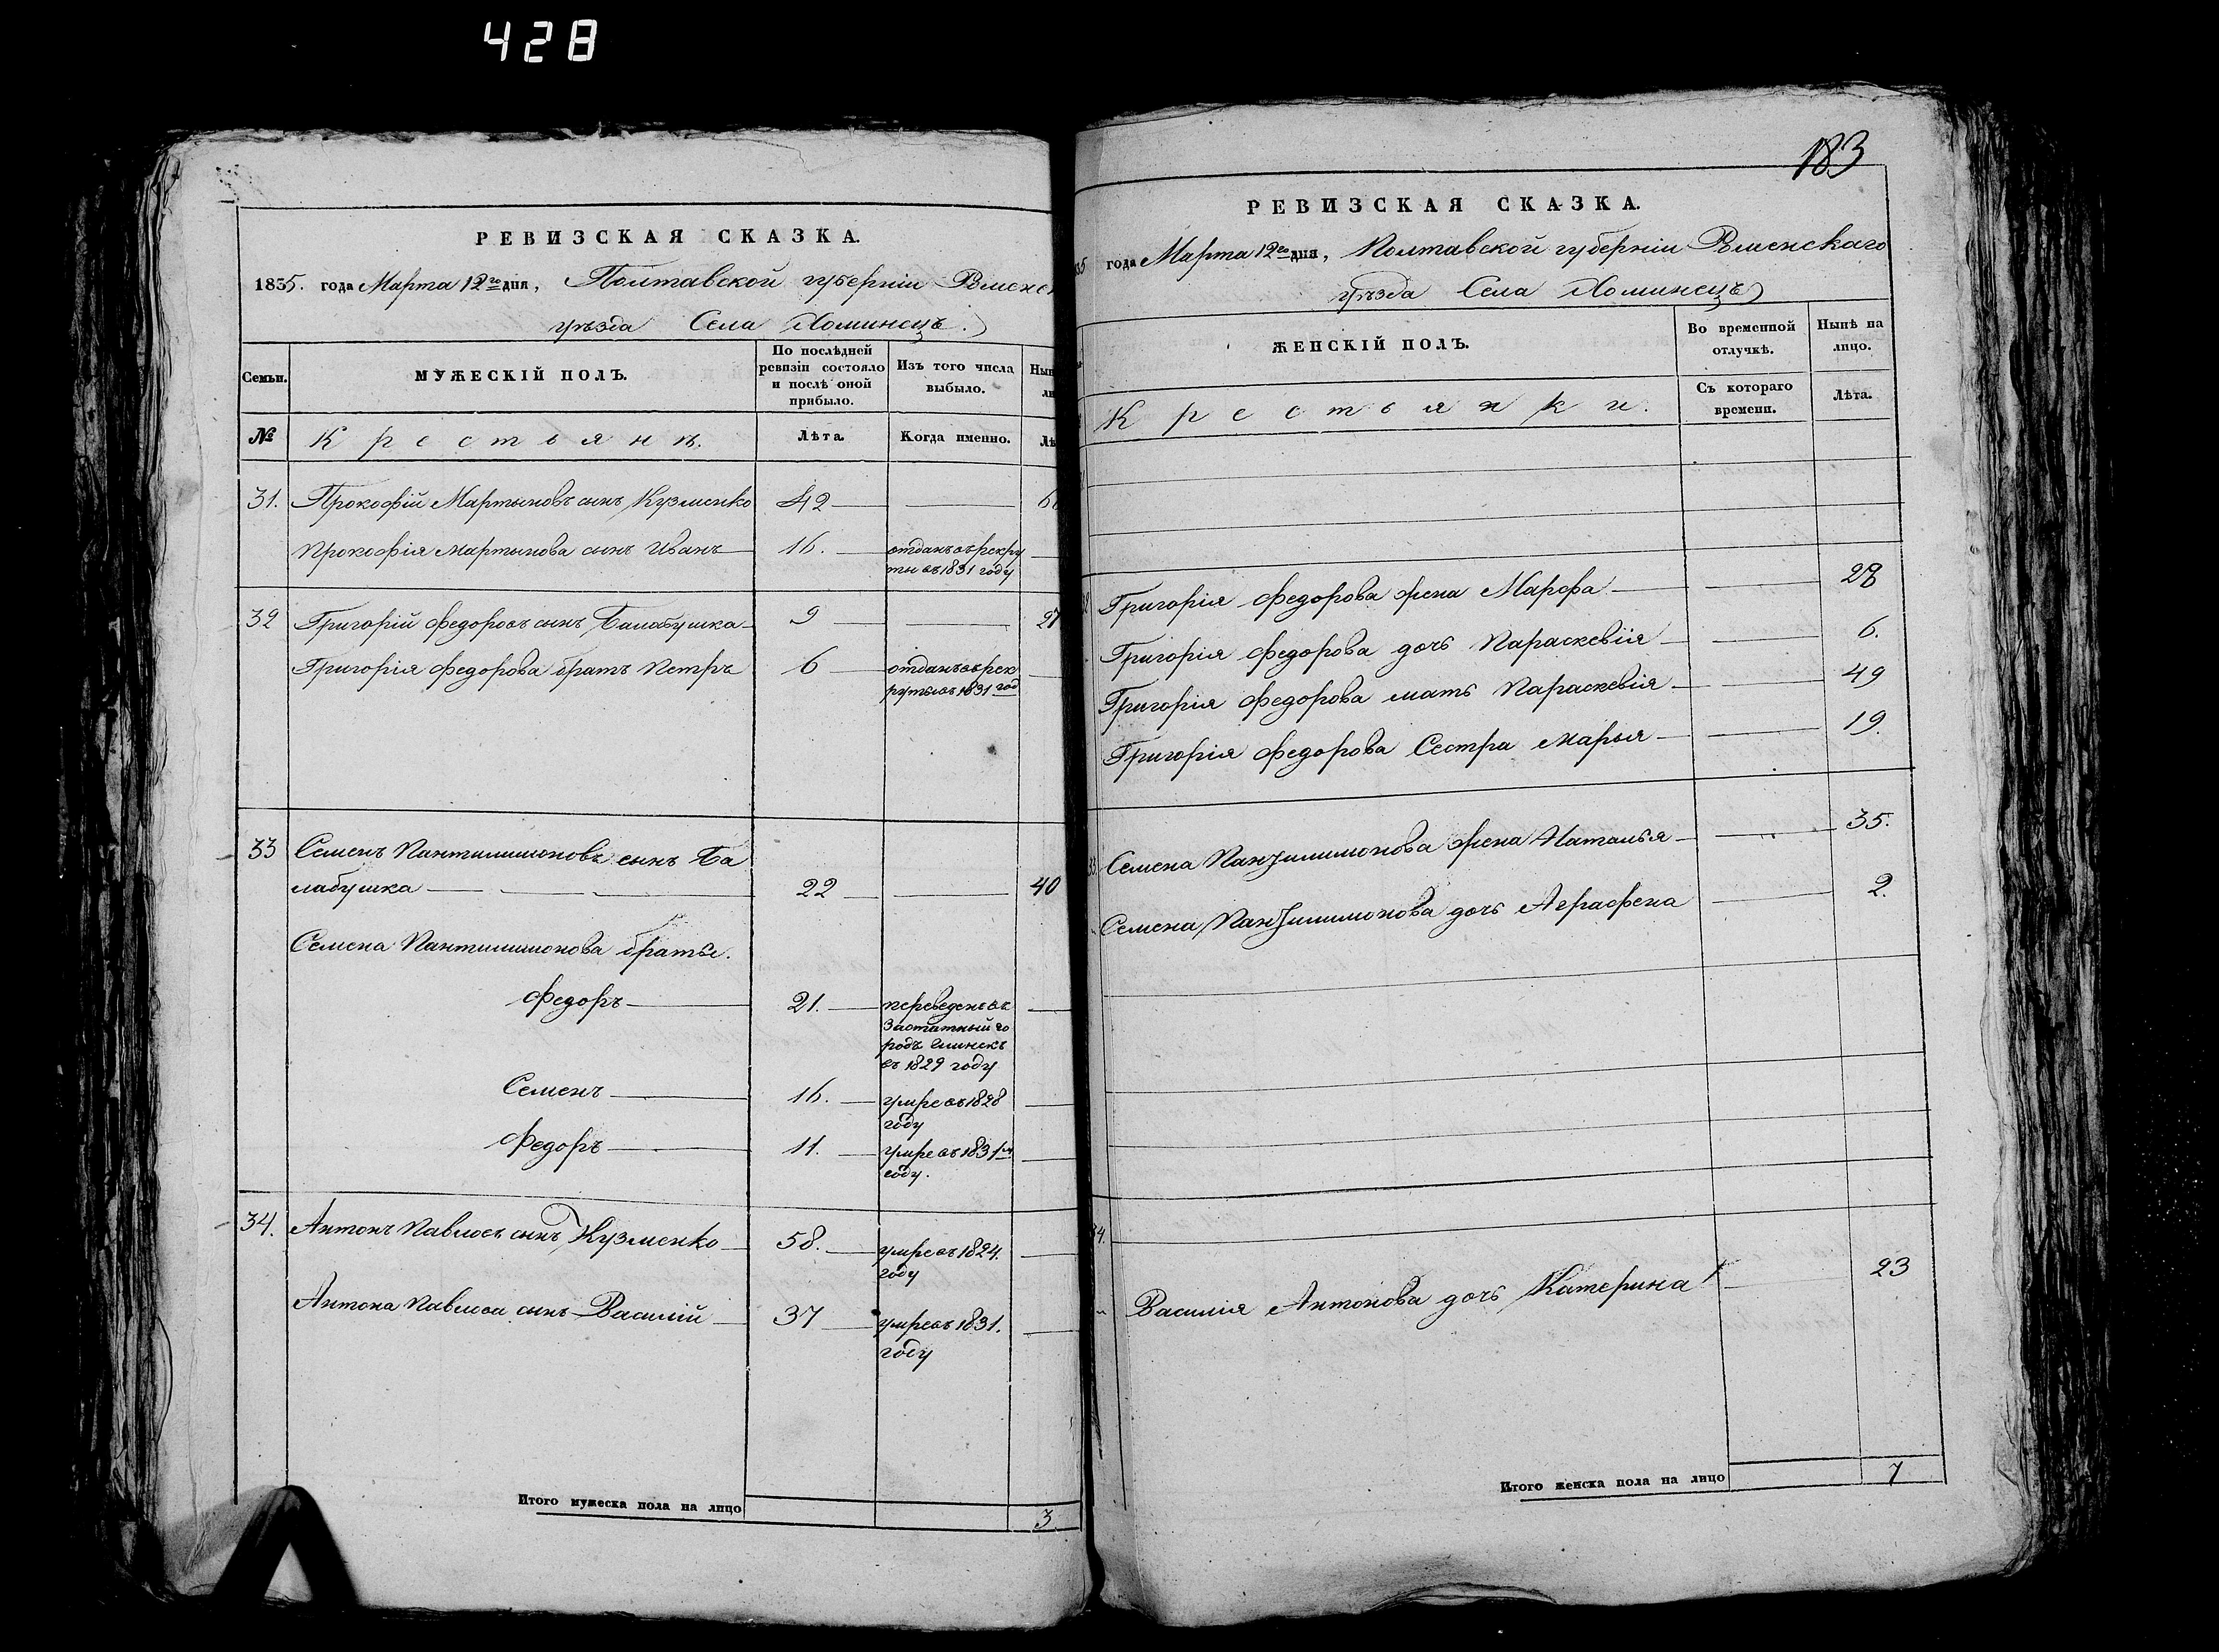 428
РЕВИЗСКАЯ СКАЗКА.
1835. года Марта 12го дня, Полтавской губерніи Роменс
уѣзда Села Хоминецъ.
Семьи.
МУЖЕСКІЙ ПОЛЪ.
По послѣдней
ревизіи состояло
и послѣ оной
прибыло.
Изъ того числа
выбыло.
Нын
ли
№
Крестьянъ.
Лѣта.
Когда именно.
Лѣ
31. Прокофій Мартыновъ сынъ Кузменко 42
Прокофія Мартынова сынъ Иванъ 16. отданъ въ рекру
ты въ 1831 году
32 Григорій Федоровъ сынъ Балабушка 9 27
Григорія Федорова братъ Петръ 6 отданъ въ рек
руты въ 1831 год
33 Семенъ Пантилимоновъ сынъ Ба
лабушка 22 40
Семена Пантилимонова братья.
Федоръ 21. переведенъ въ
Заштатный го
родъ Глинскъ
въ 1829 году
Семенъ 16. умре въ 1828
году
Федоръ 11. умре въ 1831м
году.
34. Антонъ Павловъ сынъ Кузменко 58. умре въ 1824.
году
Антона Павлова сынъ Василій 37 умре въ 1831.
году
Итого мужеска пола на лицо 3
183
РЕВИЗСКАЯ СКАЗКА.
35 года Марта 12го дня, Полтавской губерніи Роменскаго
уѣзда Села Хоминецъ
ЖЕНСКІЙ ПОЛЪ.
Во временной
отлучкѣ.
Нынѣ на
лицо.
Крестьянки.
Съ котораго
времени.
Лѣта.
Григорія Федорова жена Марфа 28
Григорія Федорова дочь Параскевія 6.
Григорія Федорова мать Параскевія 49
Григорія Федорова Сестра Марья 19.
33. Семена Пантилимонова жена Наталья 35.
Семена Пантилимонова дочь Аграфена 2.
34.
Василія Антонова дочь Катерина 23
Итого женска пола на лицо 7